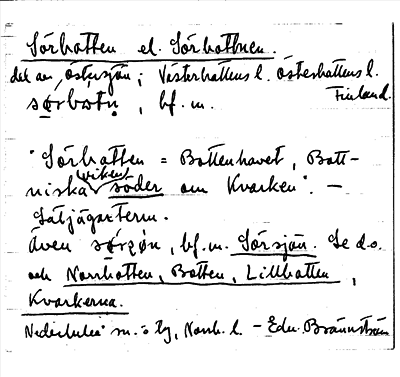 Sörbotten el. Sörbottnen.
del av Östersjön; Västerbottens l. Österbottens l.
Finland.
sø̨rbɔtn̥, bf. m.
"Sörbotten = Bottenhavet, Bott-
viken
niska söder om Kvarken". —
Säljägarterm.
Även , bf. m. Sörsjön. Se d.o.
och Norrbotten, Botten, Lillbotten,
Kvarkerna.
Nederluleå m. o tg, Norrb. l. – Edv. Brännström